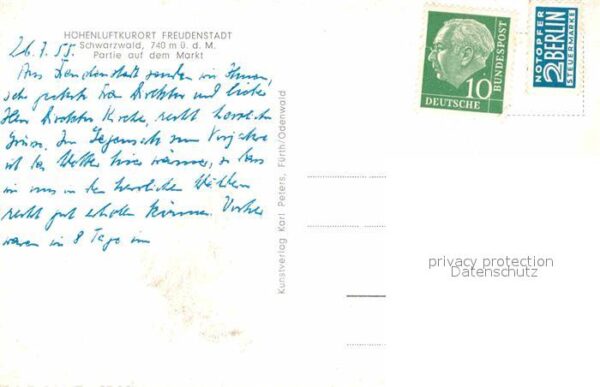 HÖHENLUFTKURORT FREUDENSTADT
Schwarzwald, 740 m ü. d. M.
Partie auf dem Markt
26.7.55.
Aus Freudenstadt senden wir Ihnen,
sehr geehrte Frau Direktor und lieber
Herr Direktor Kirche, recht herzliche
Grüsse. Im Gegensatz zum Vorjahre
ist das Wetter hier wärmer, so dass
wir uns in den herrlichen Wäldern
recht gut erholen können. Vorher
waren wir 8 Tage im
Kunstverlag Karl Peters, Fürth/Odenwald
DEUTSCHE
BUNDESPOST
10
NOTOPFER
2 BERLIN
STEUERMARKE
privacy protection
Datenschutz